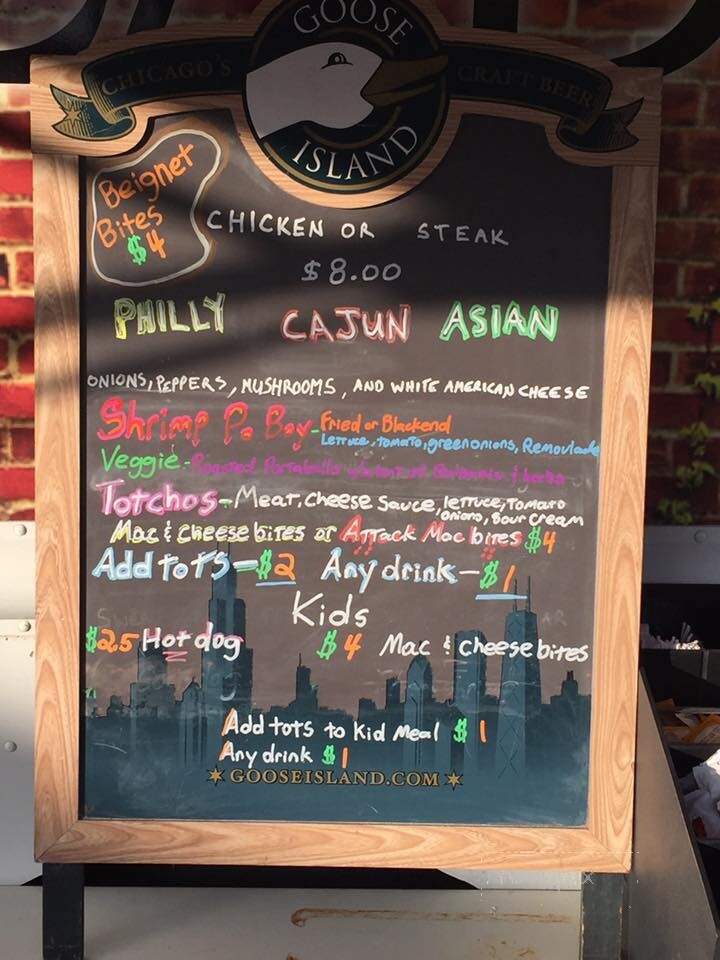 GOOSE
CHICAGO'S
CRAFT BEER
ISLAND
Beignet
Bites
$4
CHICKEN OR STEAK
$8.00
PHILLY CAJUN ASIAN
ONIONS, PEPPERS, MUSHROOMS, AND WHITE AMERICAN CHEESE
Shrimp Po Boy - Fried or Blackend
Lettuce, tomato, green onions, Remoulade
Veggie - Roasted Portabella
Totchos - Meat, Cheese Sauce, lettuce, Tomato
onions, Sour Cream
Mac & Cheese bites or Attack Mac bites $4
Add tots - $2 Any drink - $1
Kids
$2.5 Hot dog $4 Mac & cheese bites
Add tots to Kid Meal $1
Any drink $1
GOOSEISLAND.COM